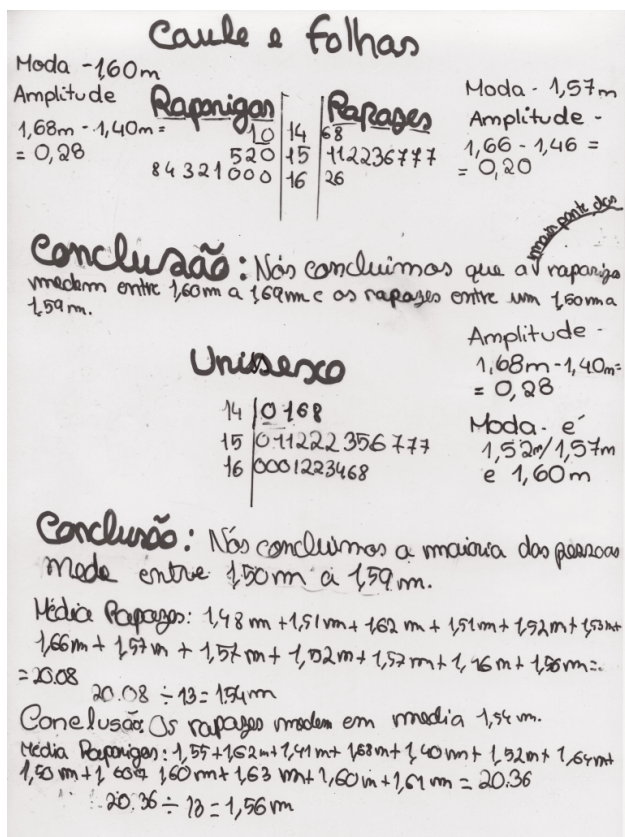 Caule e Folhas
Moda - 1,60m
Amplitude
1,68m - 1,40m =
= 0,28
Raparigas | | Rapazes
10 | 14 | 68
520 | 15 | 112236777
84321000 | 16 | 26
Moda - 1,57m
Amplitude -
1,66 - 1,46 =
= 0,20
maior parte das
Conclusão: Nós concluimos que a raparigas
medem entre 1,60m a 1,69m e os rapazes entre um 1,50m a
1,59m.
Unisexo
14 | 0168
15 | 011222356777
16 | 0001223468
Amplitude -
1,68m - 1,40m=
= 0,28
Moda - é
1,52m/1,57m
e 1,60m
Conclusão: Nós concluimos a maioria das pessoas
mede entre 1,50m a 1,59m.
Média Rapazes: 1,48m + 1,51m + 1,62m + 1,51m + 1,52m + 1,53m +
1,66m + 1,57m + 1,57m + 1,52m + 1,57m + 1,46m + 1,56m =
= 20.08
20.08 ÷ 13 = 1,54m
Conclusão: Os rapazes medem em media 1,54m.
Média Raparigas: 1,55 + 1,62m + 1,41m + 1,68m + 1,40m + 1,52m + 1,64m +
1,50m + 1,60+ 1,60m + 1,63m + 1,60m + 1,61m = 20.36
20.36 ÷ 13 = 1,56m